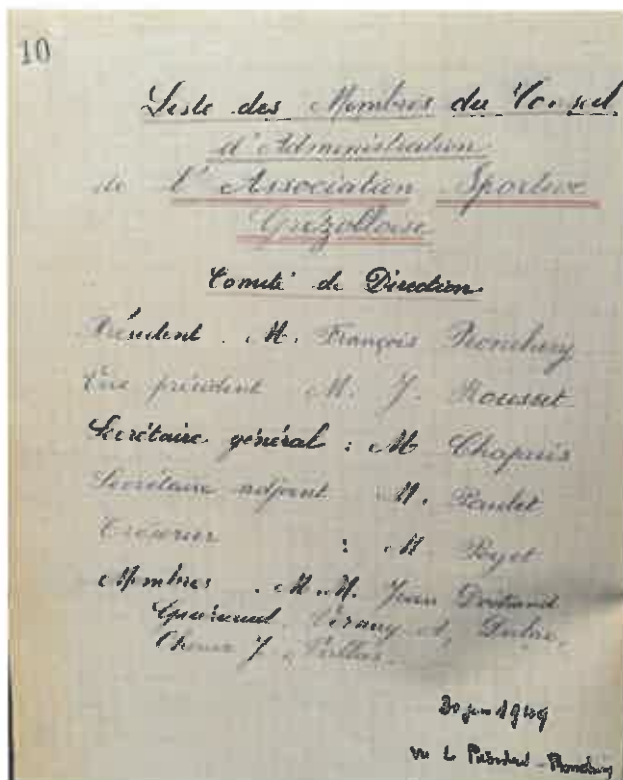 10
Liste des Membres du Conseil
d'Administration
de l'Association Sportive
Grézolloise
Comité de Direction
Président . M. François
Vice président M. J. Rousset
Secrétaire général : M Chapuis
Secrétaire adjoint M.
Trésorier : M Poyet
Membres . M.M. Jean
J
30 juin
vu le Président